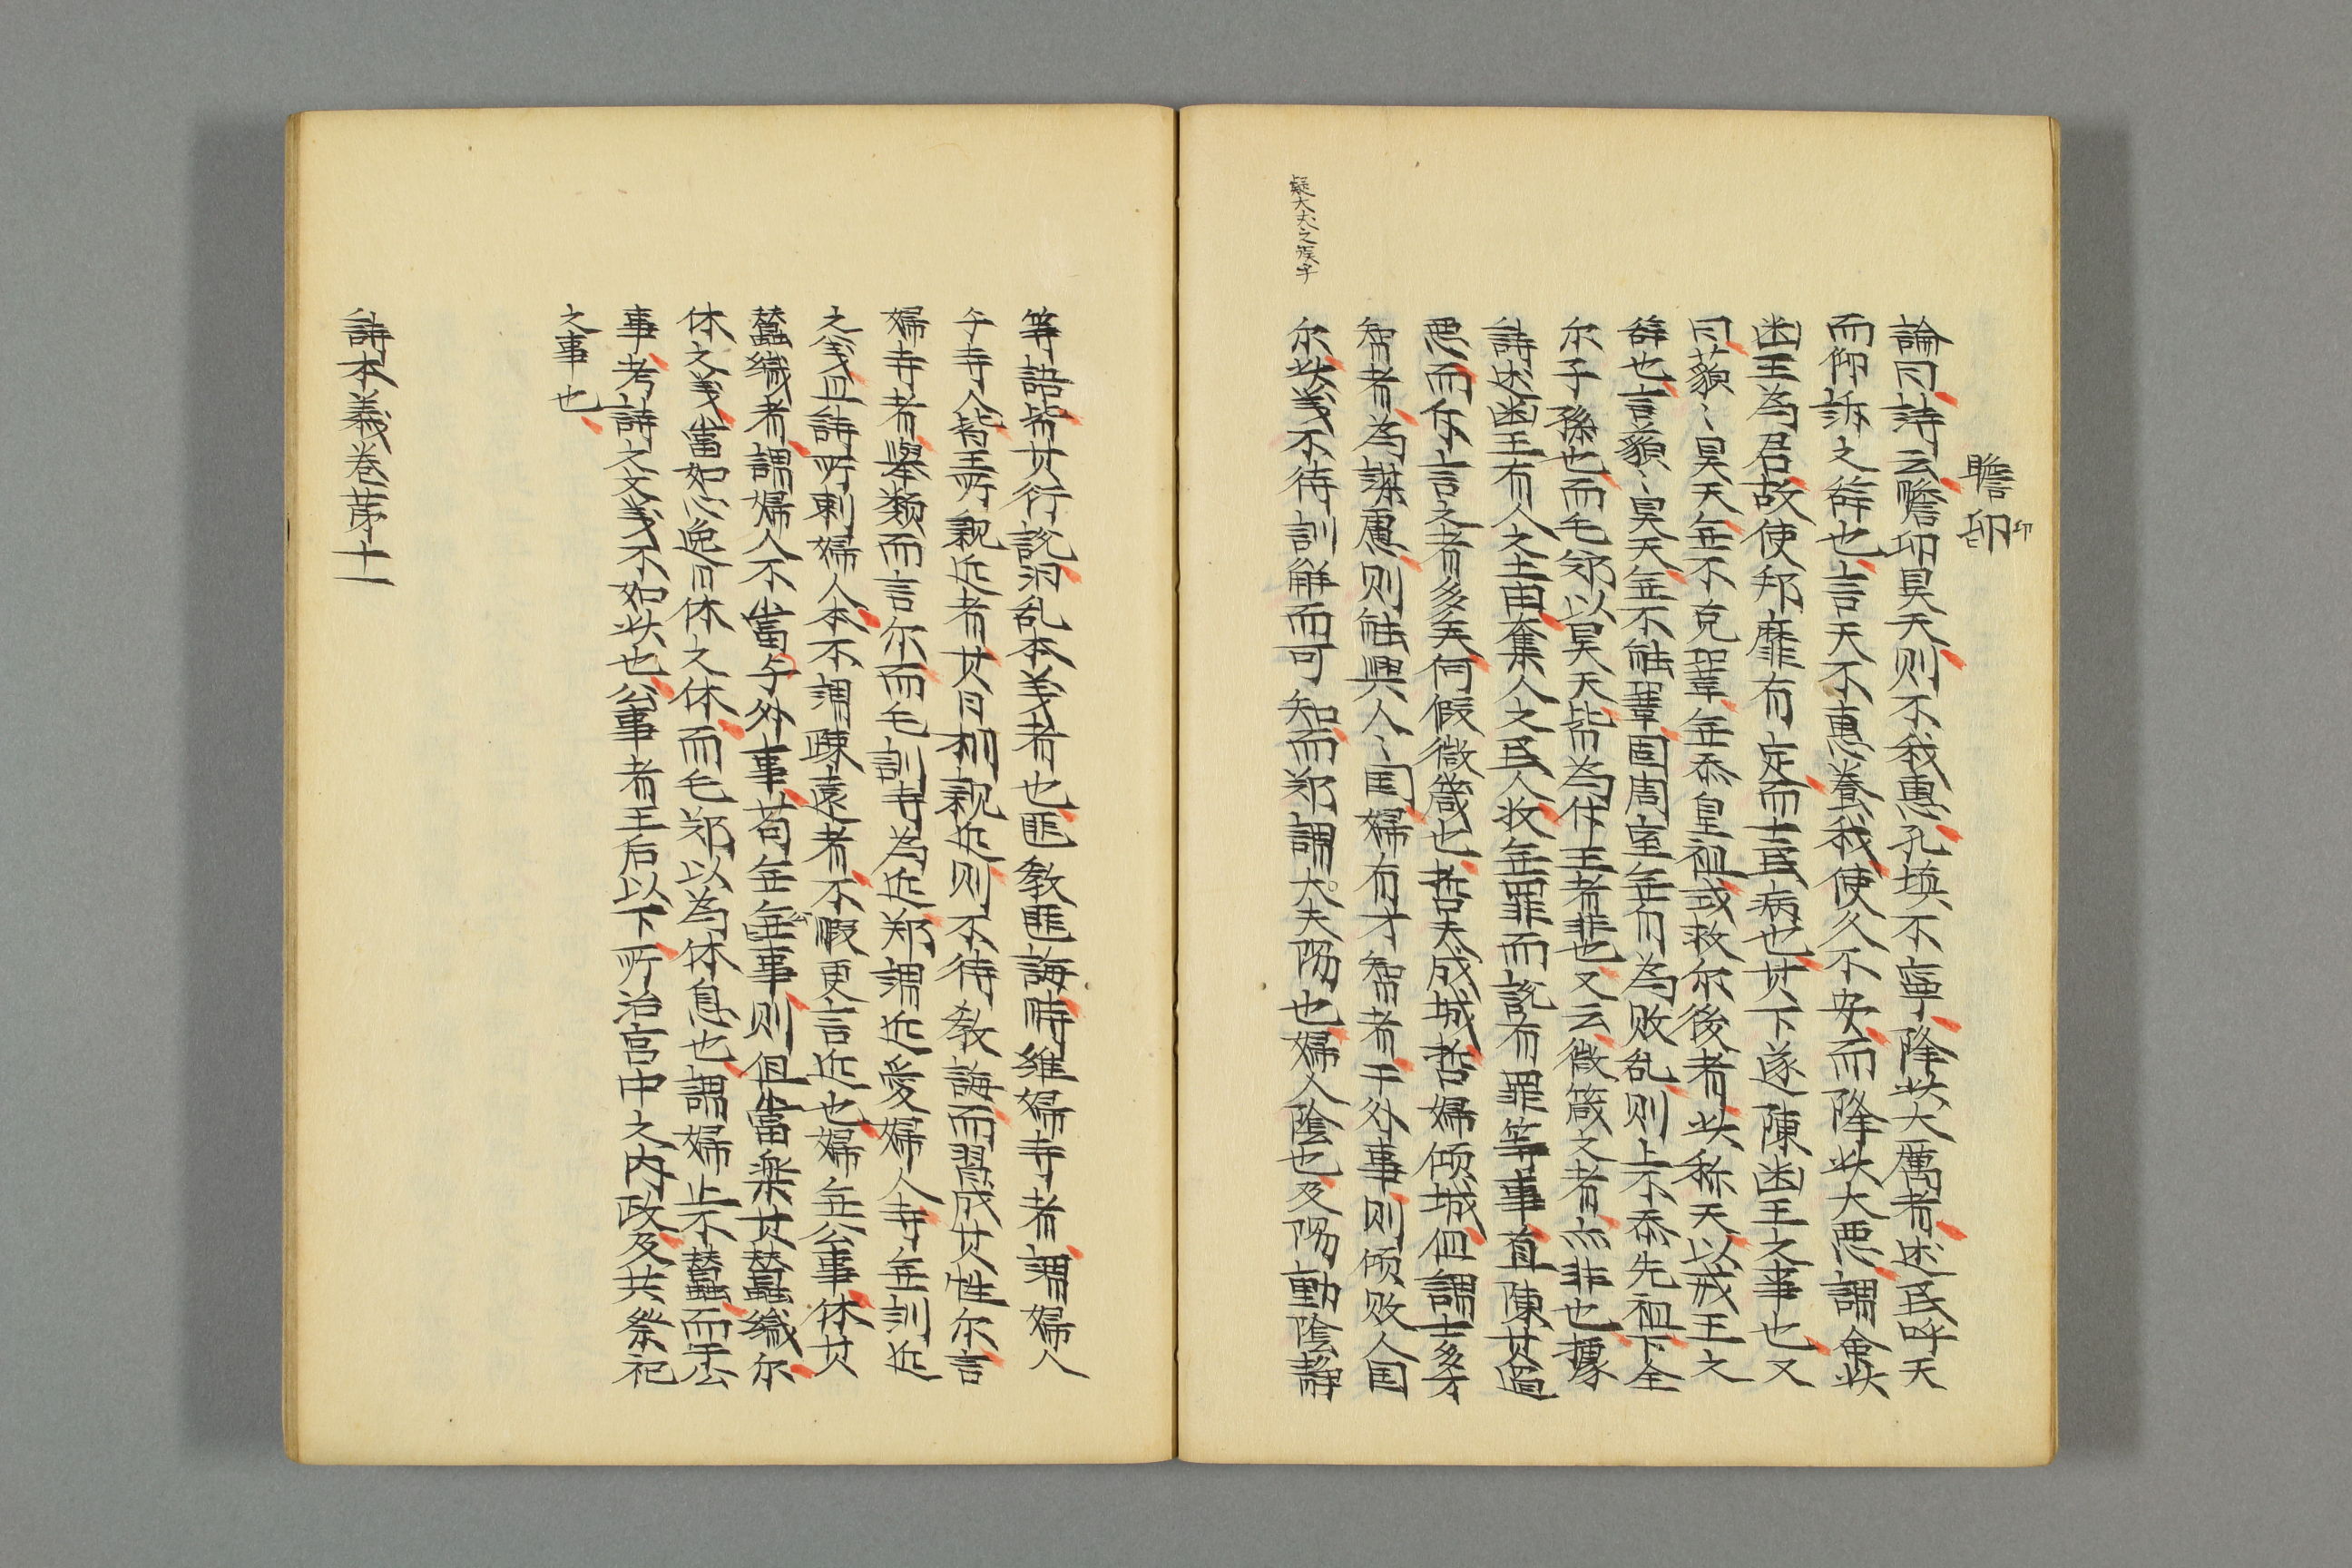 瞻卬
卬
論曰詩云瞻卬昊天則不我惠孔填不寧降此大厲者述民呼天
而仰訴之辞也言天不惠養我使久不安而降此大悪謂命此
幽王為君故使邦靡有定而士民病也其下遂陳幽王之事也又
曰藐〻昊天無不克鞏無忝皇祖或救尔後者此称天以戒王之
辞也言藐〻昊天無不能鞏固周室無自為敗乱則上不忝先祖下全
尔子孫也而毛郑以昊天皆為仵王者非也又云微箴之者亦非也據
詩述幽王有人之土田奪人之民人收無罪而説有罪等事直陳其過
悪而仵言之者多矣何假微箴也哲夫成城哲婦傾城但謂士多才
智者為謀慮則能興人〻国婦有才智者干外事則傾敗人国
尔此義不待訓解而可知而郑謂大夫陽也婦人陰也及陽動陰静
疑大夫之疾字
等語皆其衍説汩乱本義者也匪教匪誨時維婦寺者謂婦人
与寺人皆王所親近者其日相親近則不待教誨而習成其性尔言
婦寺者舉類而言尔而毛訓寺為近郑謂近愛婦人寺無訓近
之義且詩所刺婦人本不謂疎遠者不假更言近也婦無公事休其
蠶織者謂婦人不當与外事苟無無事則但當楽其蠶織尔
休之義當如心逸日休之休而毛郑以為休息也謂婦止不蠶而干公
事考詩之文義不如此也公事者王后以下所治宮中之内政及共祭祀
之事也
詩本義巻苐十一